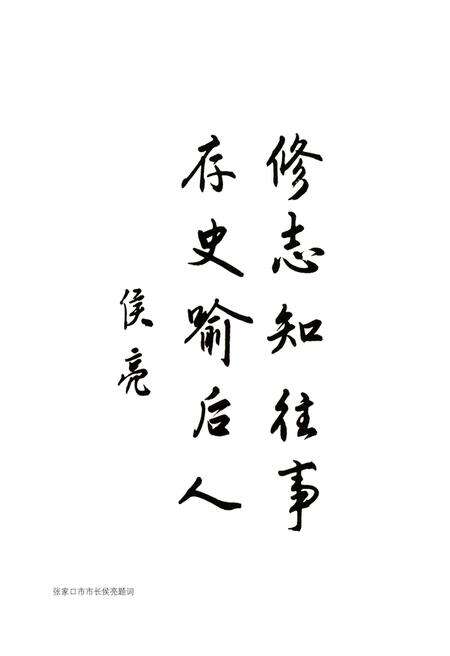 修志知往事
存史喻后人
侯亮
张家口市市长侯亮题词